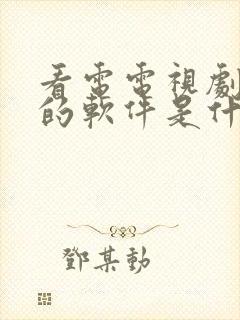 看電電視劇
的軟件是什
鄧某勳